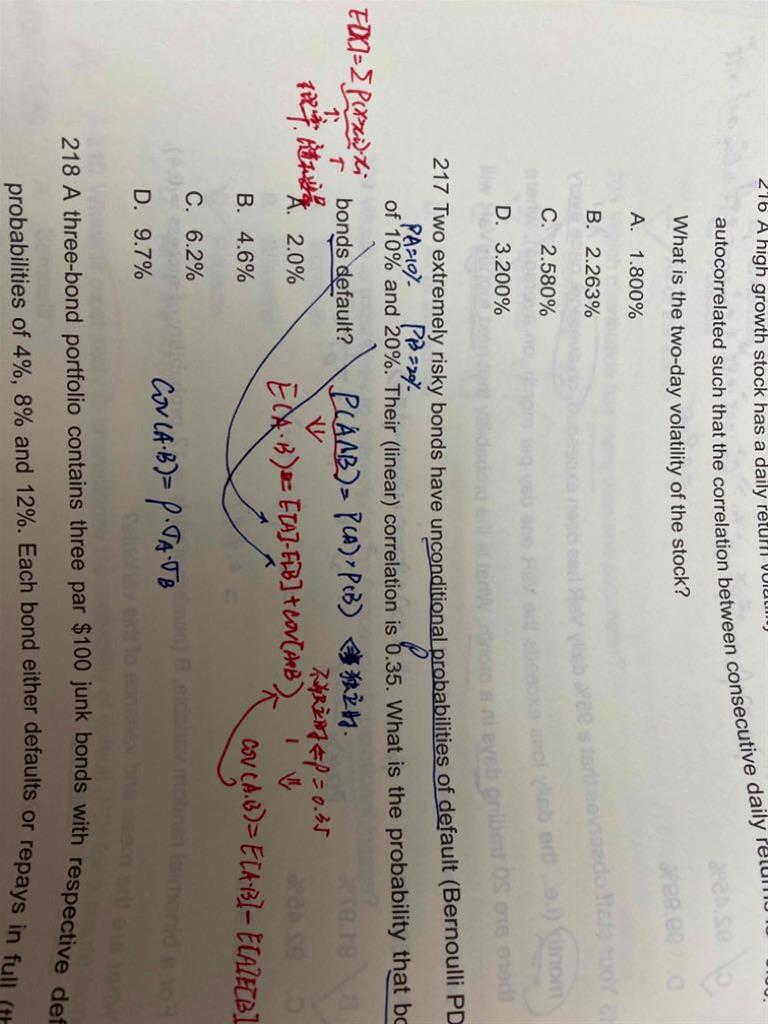 216 A high growth stock has a daily return volatility
autocorrelated such that the correlation between consecutive daily returns is
What is the two-day volatility of the stock?
A. 1.800%
B. 2.263%
C. 2.580%
D. 3.200%
217 Two extremely risky bonds have unconditional probabilities of default (Bernoulli PD
PA=10% PB=20% ρ
of 10% and 20%. Their (linear) correlation is 0.35. What is the probability that bo
bonds default?
E[X]=Σ P(X=xi)·xi
概率. 随机变量
P(A∩B)=P(A)×P(B) 独立时.
不独立时 ⇐ρ=0.35
A. 2.0%
E(A·B)=E[A]·E[B]+cov(A·B)
B. 4.6%
cov(A.B)=E[A·B]-E[A]E[B]
C. 6.2%
D. 9.7%
Cov(A·B)=ρ·σA·σB
218 A three-bond portfolio contains three par $100 junk bonds with respective def
probabilities of 4%, 8% and 12%. Each bond either defaults or repays in full (th